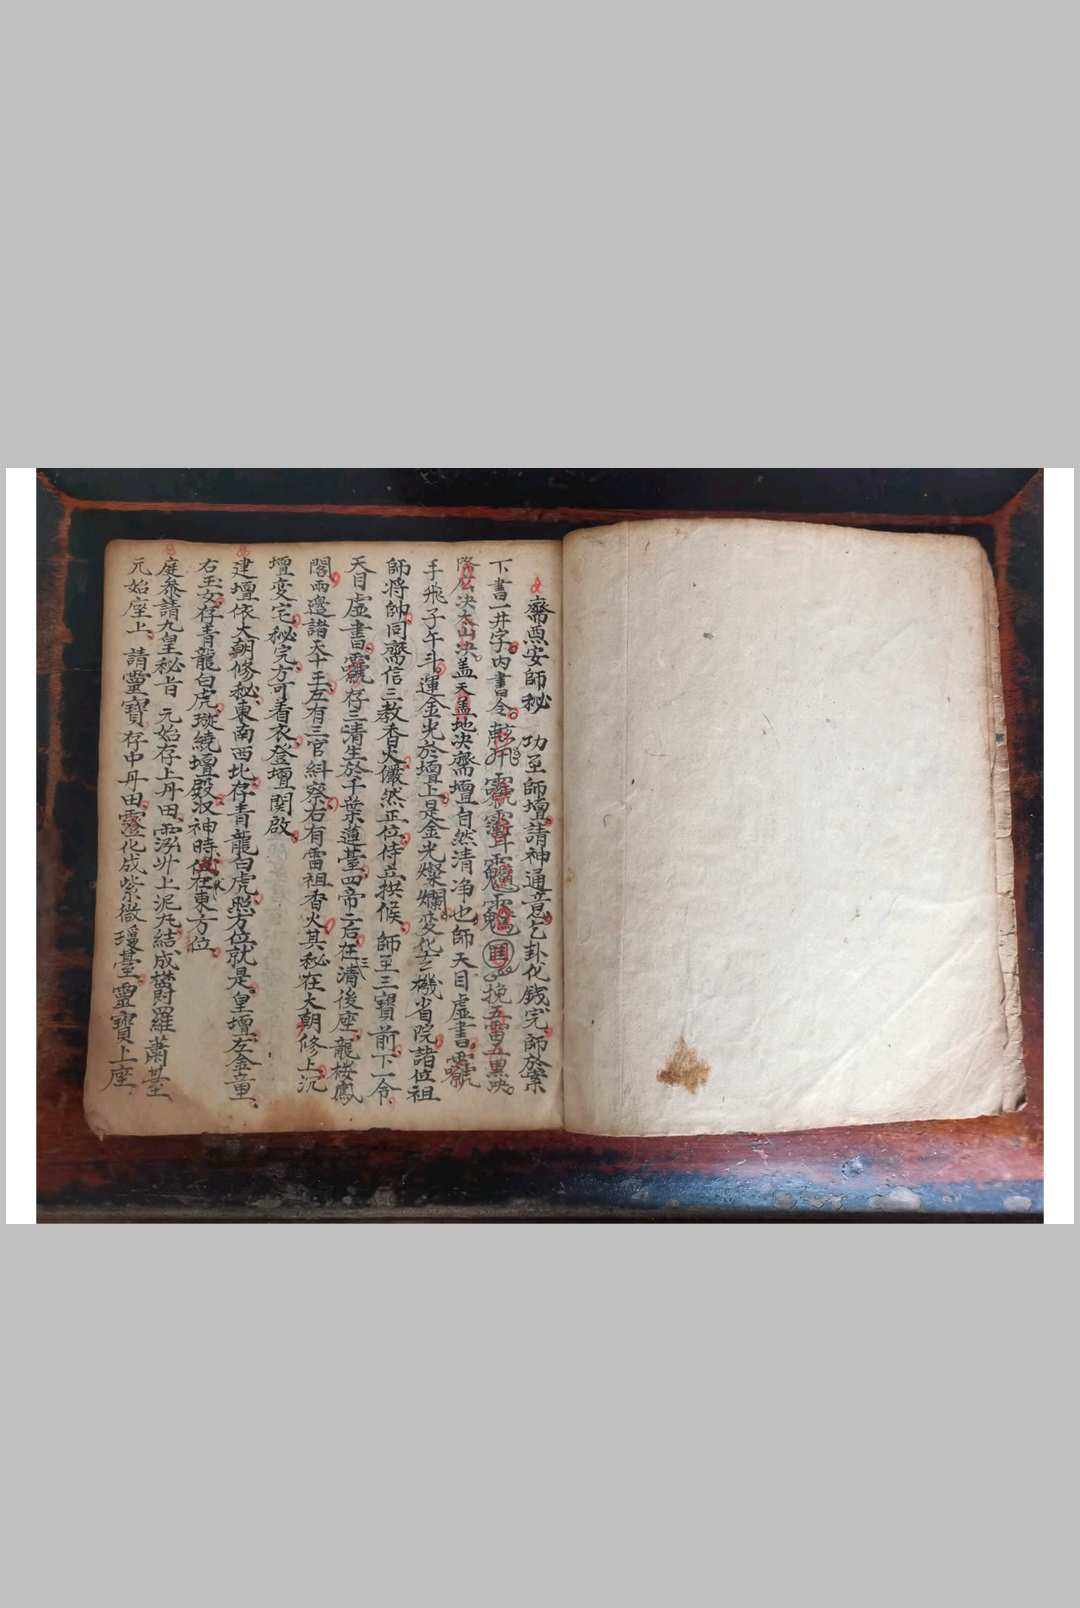 齋焦安師秘 功至師壇請神通意乞卦化錢完師於案
下書一井字内書令 挽五雷五黑決
決太山決蓋天蓋地決齋壇自然清净也師天目虚書
手飛子午斗運金光於壇上是金光燦爛変化玄機省院諸位祖
師將帥同齋信三教香火儼然正位侍立拱候師至三寶前下一令
天目虚書 存三清生於千葉蓮臺四帝二后在三清後座龍楼鳳
閣兩邊諸天十王左有三官糾察右有雷祖香火其秘在大朝修上沉
壇変宅秘完方可着衣登壇開啟
建壇依大朝修秘東南西北存青龍白虎照方位就是皇壇左金童
右玉女存青龍白虎璇繞壇殿収神時在東方位
庭叅請九皇秘旨 元始存上丹田 上泥丸結成欝羅蕭臺
元始座上 請靈寶存中丹田 化成紫微瓊臺靈寶上座